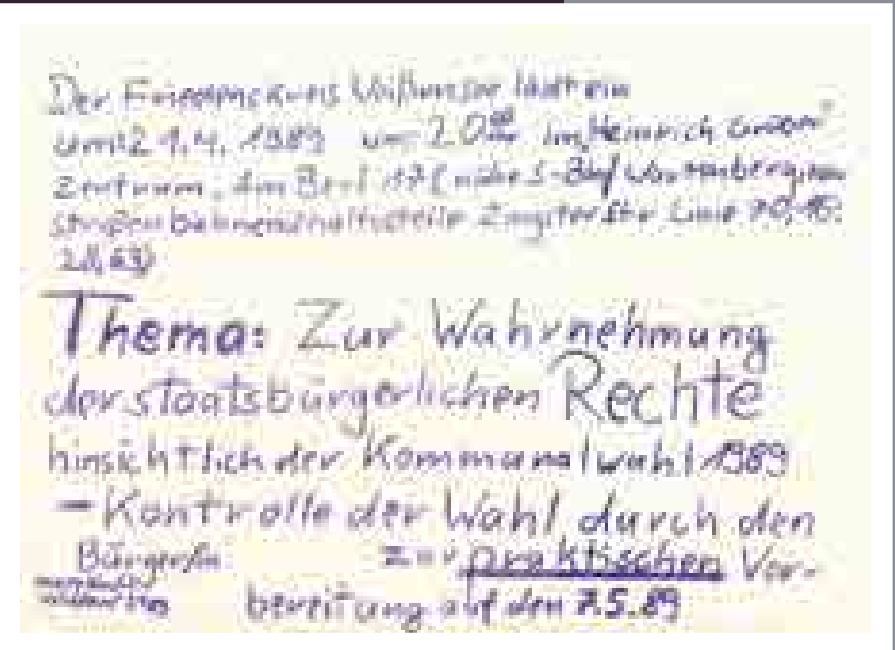 Der Friedenskreis Weißensee lädt ein
am 21.4.1989 um 20 Uhr im "Heinrich Grüber"
Zentrum, Am Berl 17 (nähe S-Bhf Wartenberg
Straßenbahnhaltestelle Zingster Str Linie 70,
63)
Thema: Zur Wahrnehmung
der staatsbürgerlichen Rechte
hinsichtlich der Kommunalwahl 1989
- Kontrolle der Wahl durch den
Bürger/in zur praktischen Vor-
bereitung auf den 7.5.89